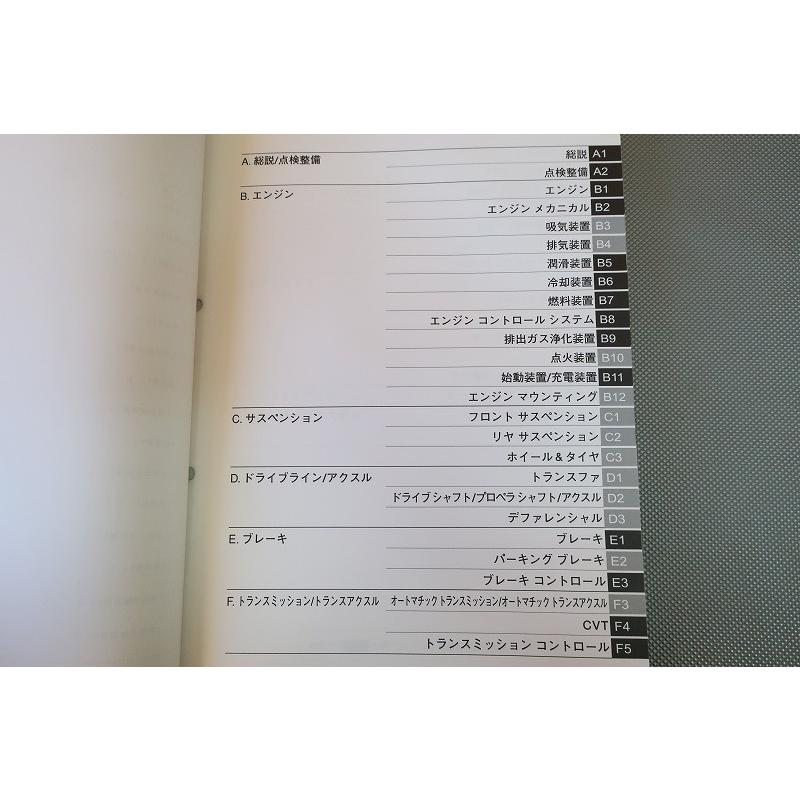 A. 総説/点検整備 総説 A1
点検整備 A2
B. エンジン エンジン B1
エンジン メカニカル B2
吸気装置 B3
排気装置 B4
潤滑装置 B5
冷却装置 B6
燃料装置 B7
エンジン コントロール システム B8
排出ガス浄化装置 B9
点火装置 B10
始動装置/充電装置 B11
エンジン マウンティング B12
C. サスペンション フロント サスペンション C1
リヤ サスペンション C2
ホイール＆タイヤ C3
D. ドライブライン/アクスル トランスファ D1
ドライブシャフト/プロペラシャフト/アクスル D2
デファレンシャル D3
E. ブレーキ ブレーキ E1
パーキング ブレーキ E2
ブレーキ コントロール E3
F. トランスミッション/トランスアクスル オートマチック トランスミッション/オートマチック トランスアクスル F3
CVT F4
トランスミッション コントロール F5